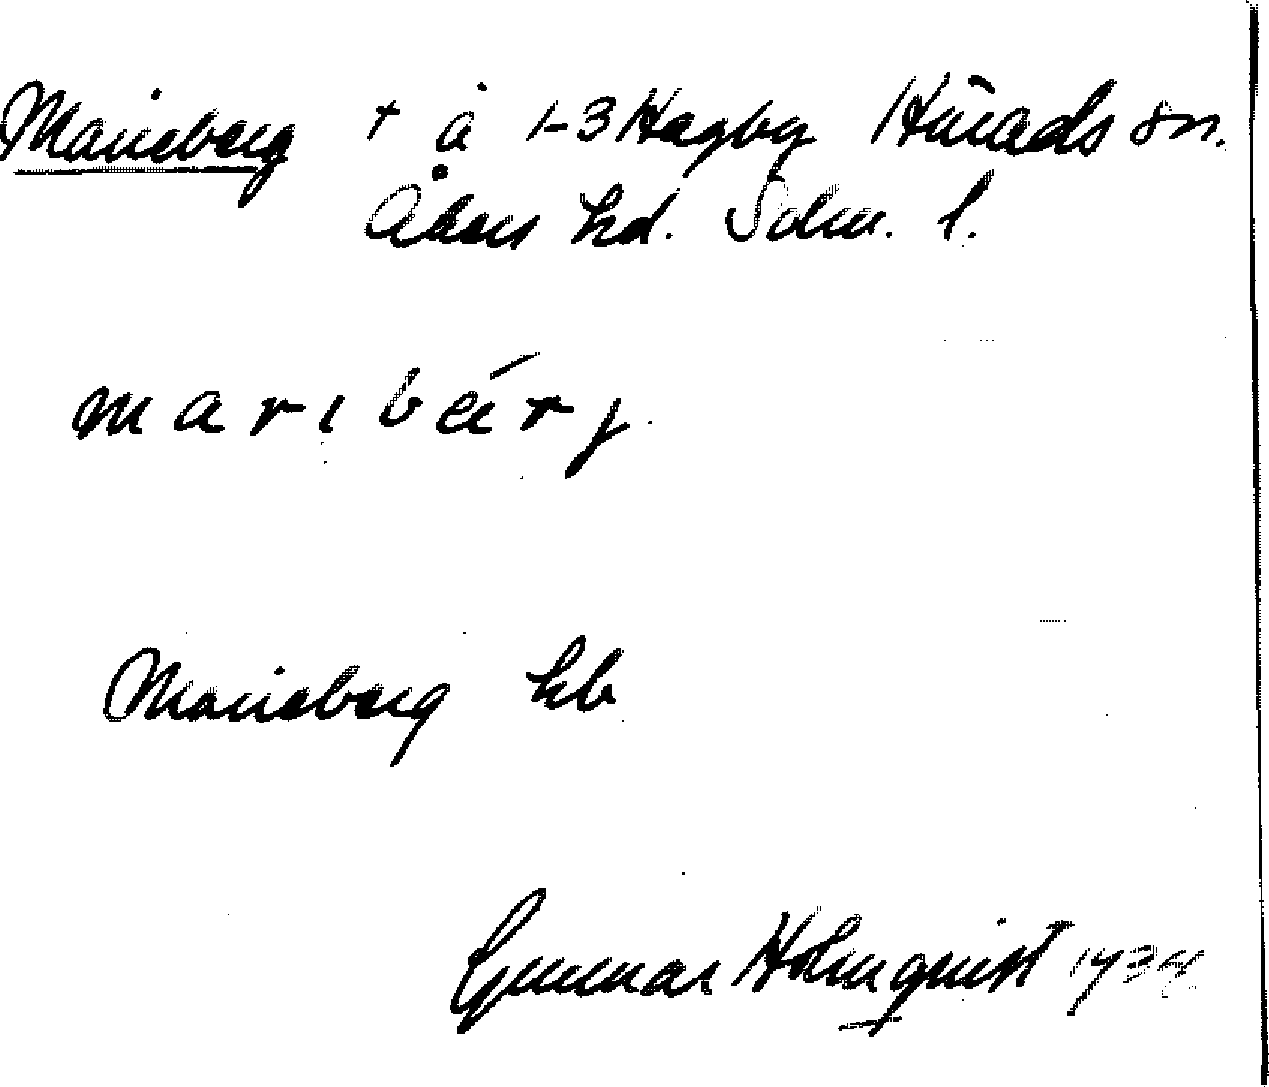 Marieberg + å 1-3 Hagby Härads sn.
Åkers hd. Södm. l.
mariba̋rj
Marieberg hb
Gunnar Holmquist 1934